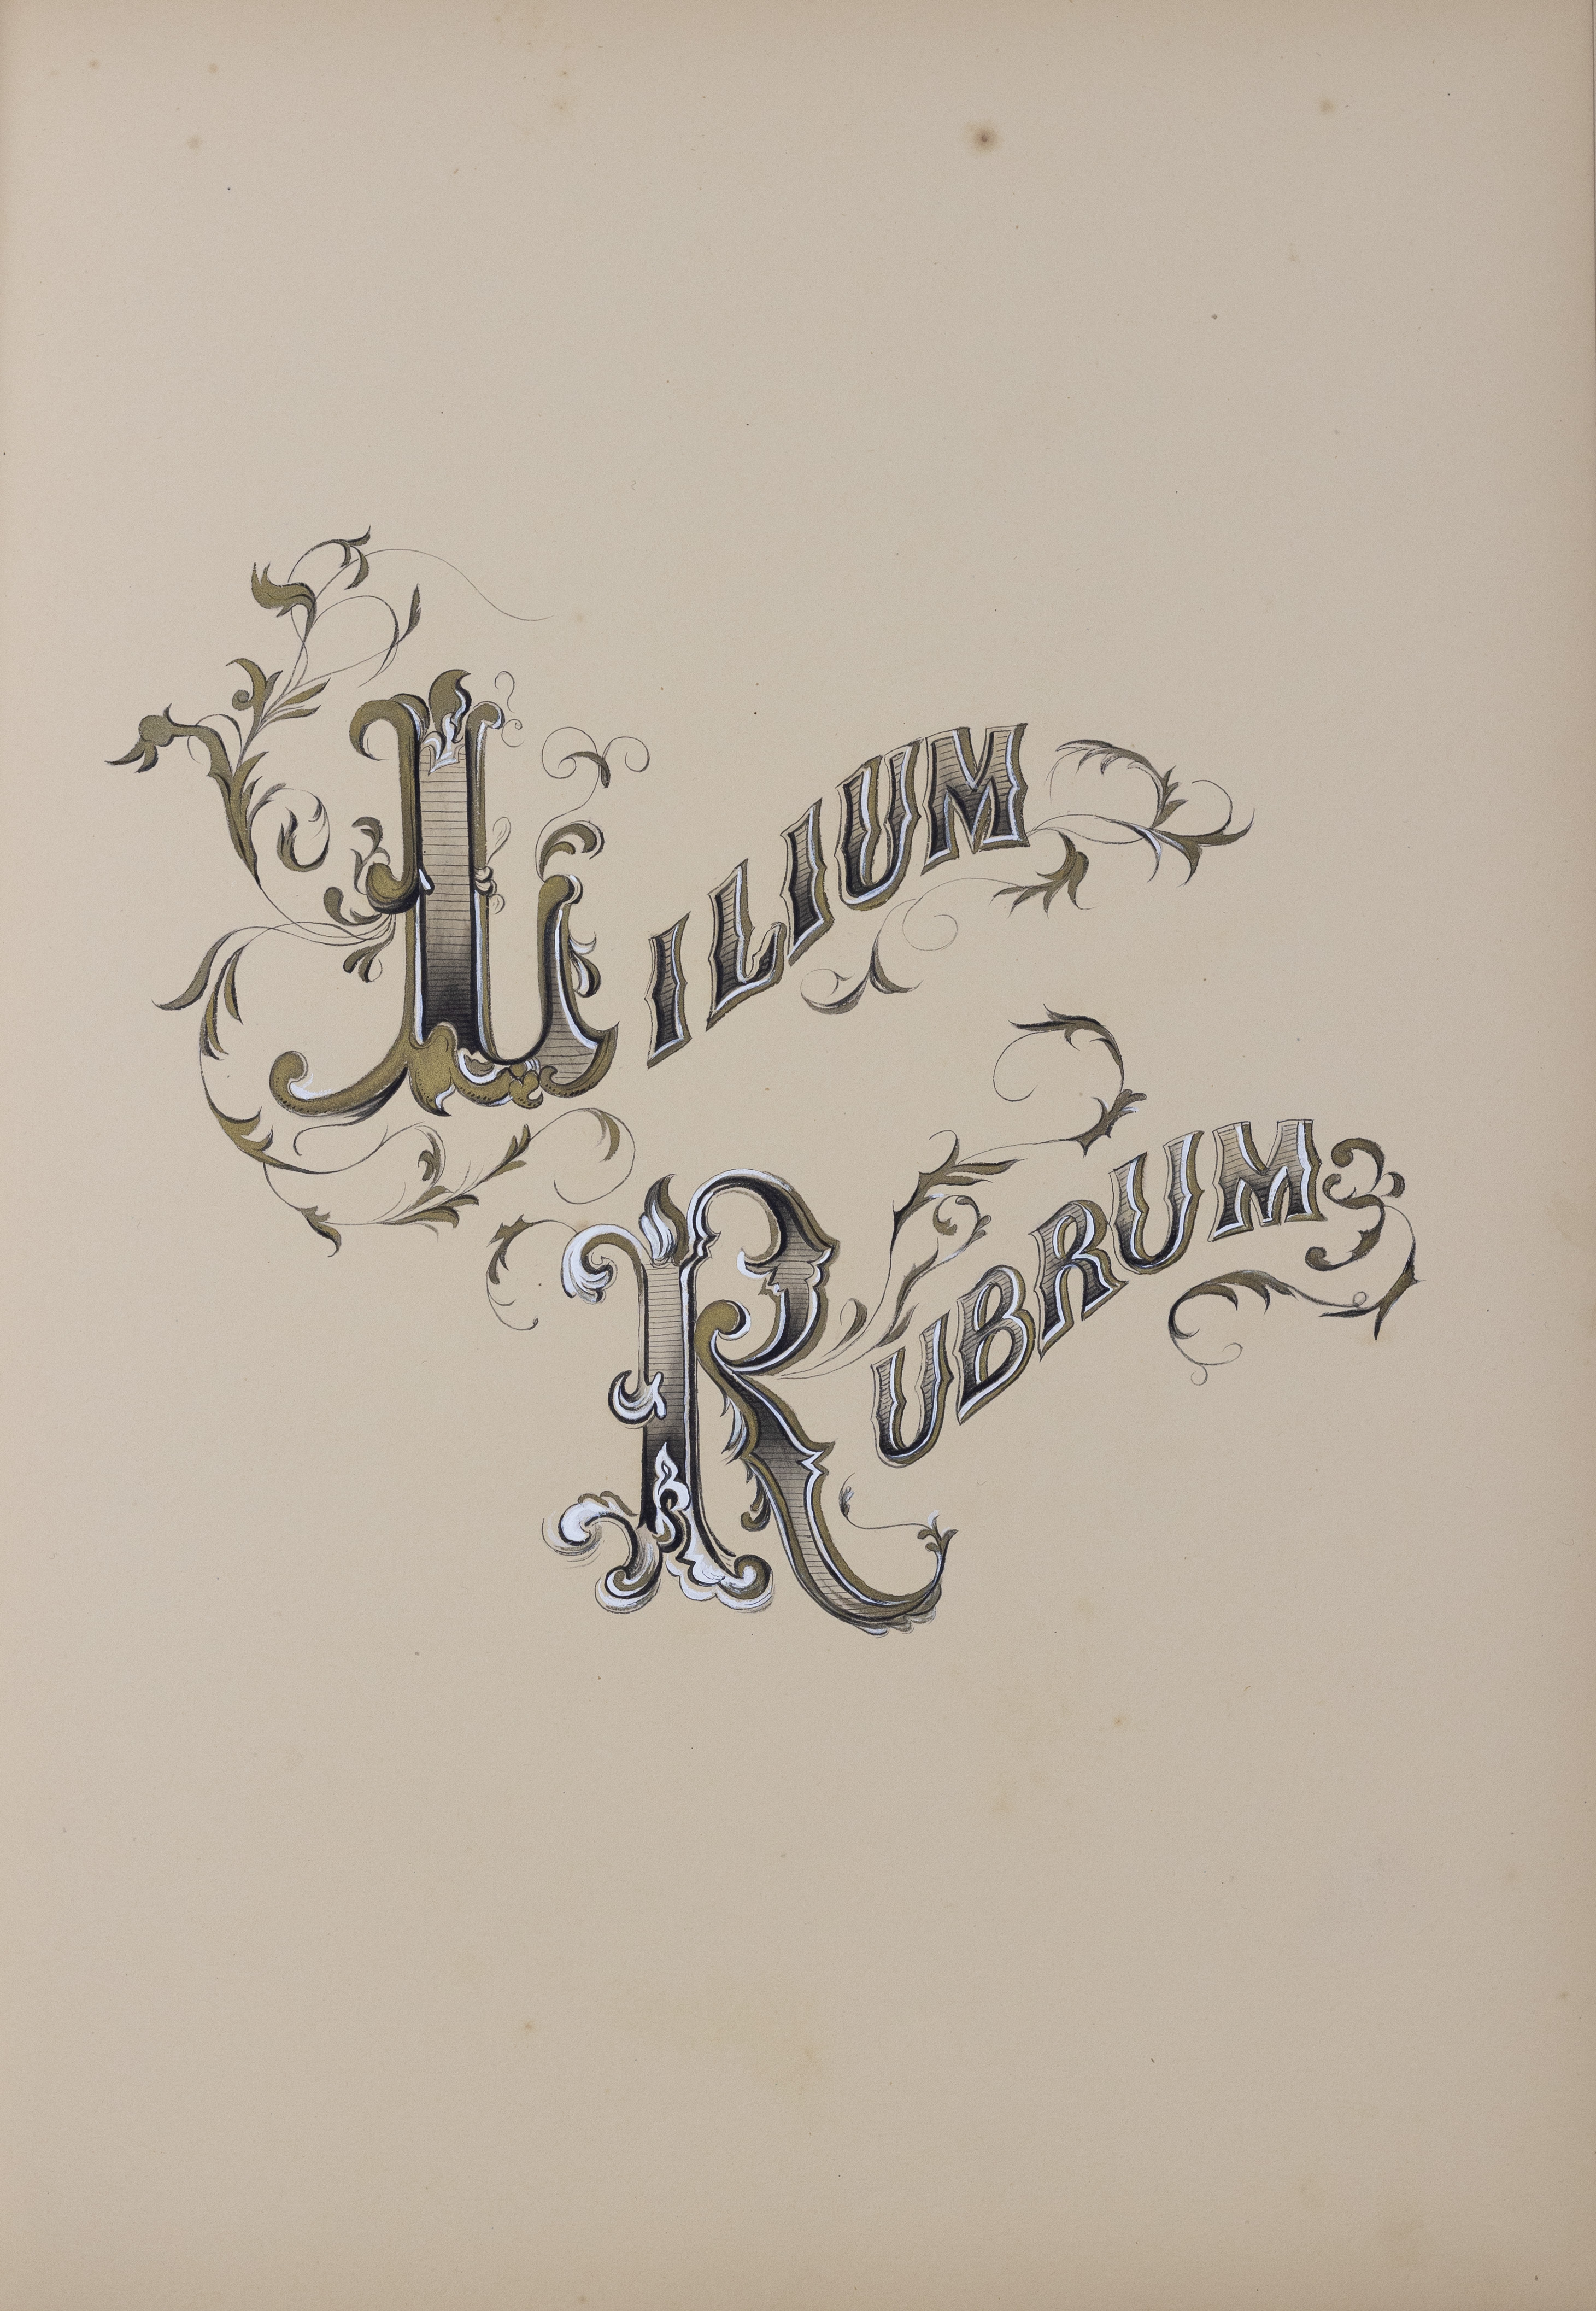 LILIUM
RUBRUM